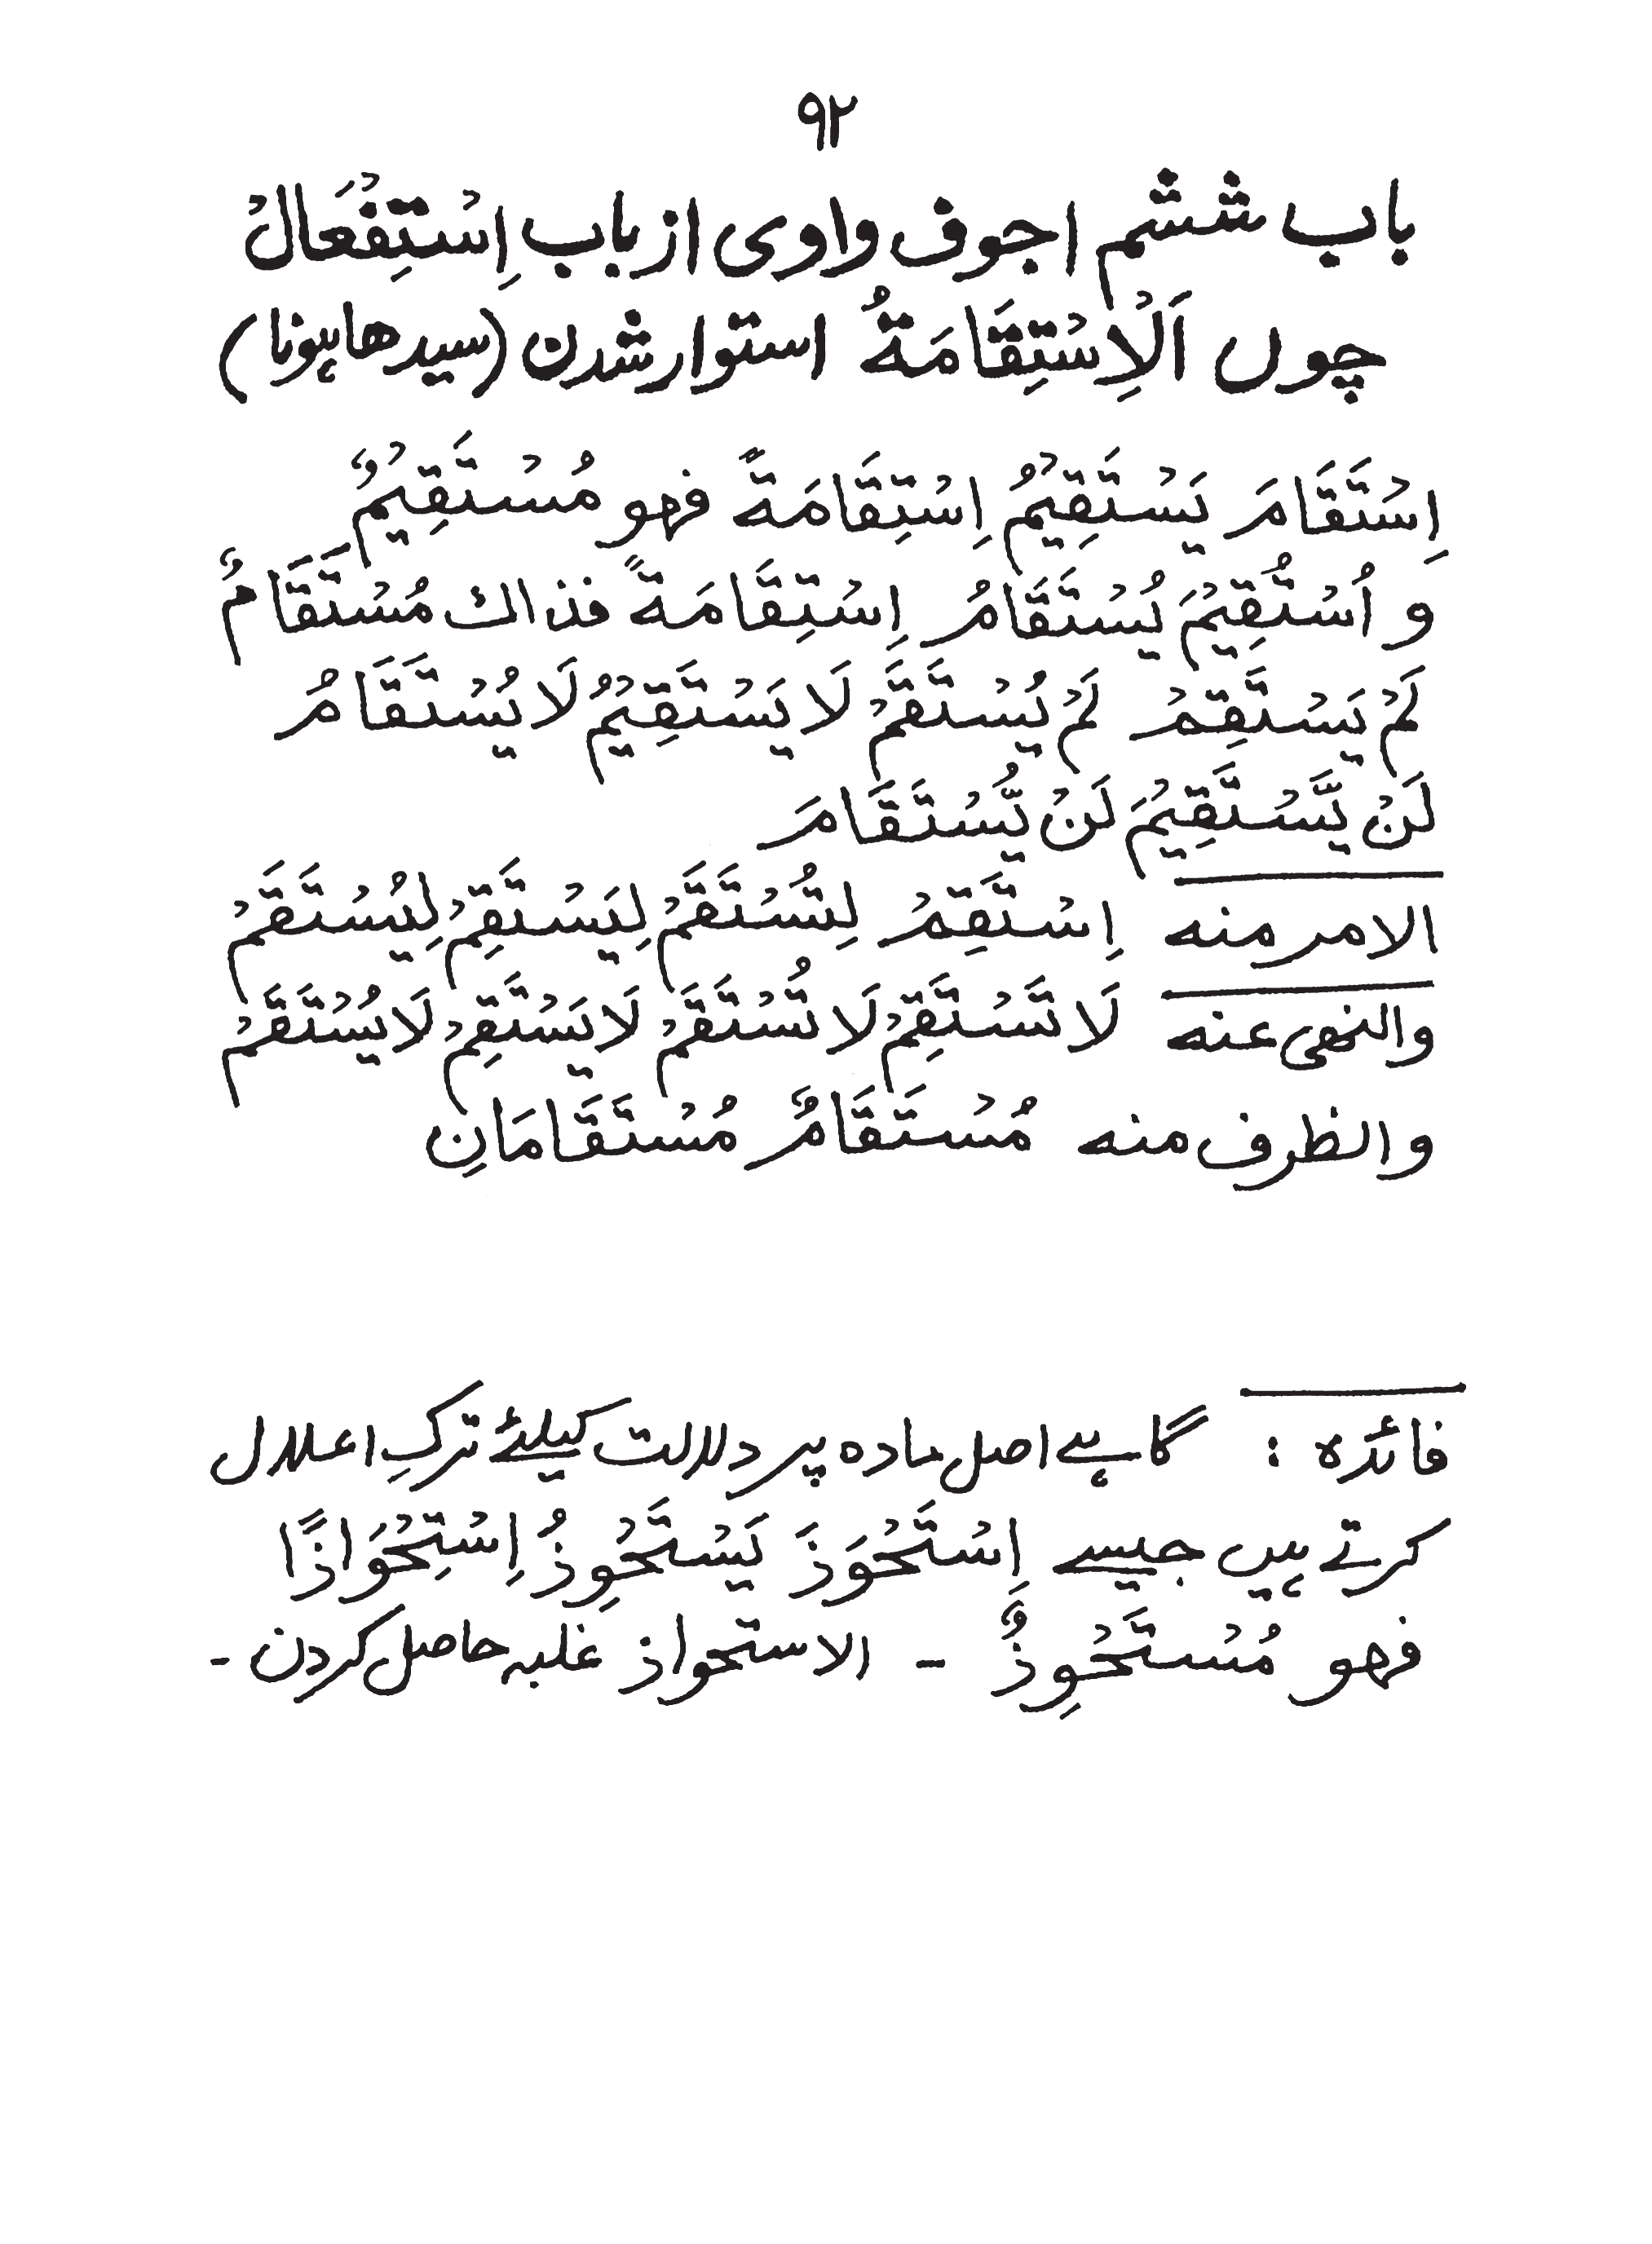 ۹۲
باب ششم اجوف واوی از باب اِسْتِفْعَالْ
چوں اَلْاِسْتِقَامَةُ استوار شدن (سیدھا ہونا)
اِسْتَقَامَ يَسْتَقِيْمُ اِسْتِقَامَةً فهو مُسْتَقِيْمٌ
و اُسْتُقِيْمَ يُسْتَقَامُ اِسْتِقَامَةً فذاك مُسْتَقَامٌ
لَمْ يَسْتَقِمْ لَمْ يُسْتَقَمْ لَا يَسْتَقِيْمُ لَا يُسْتَقَامُ
لَنْ يَّسْتَقِيْمَ لَنْ يُّسْتَقَامَ
الامر منه اِسْتَقِمْ لِتُسْتَقَمْ لِيَسْتَقِمْ لِيُسْتَقَمْ
والنهى عنه لَا تَسْتَقِمْ لَا تُسْتَقَمْ لَا يَسْتَقِمْ لَا يُسْتَقَمْ
والظرف منه مُسْتَقَامٌ مُسْتَقَامَانِ
فائدہ : گاہے اصل مادہ پر دلالت کیلئے ترکِ اعلال
کرتے ہیں جیسے اِسْتَحْوَذَ يَسْتَحْوِذُ اِسْتِحْوَاذًا
فهو مُسْتَحْوِذٌ - الاستحواذ غلبہ حاصل کردن -